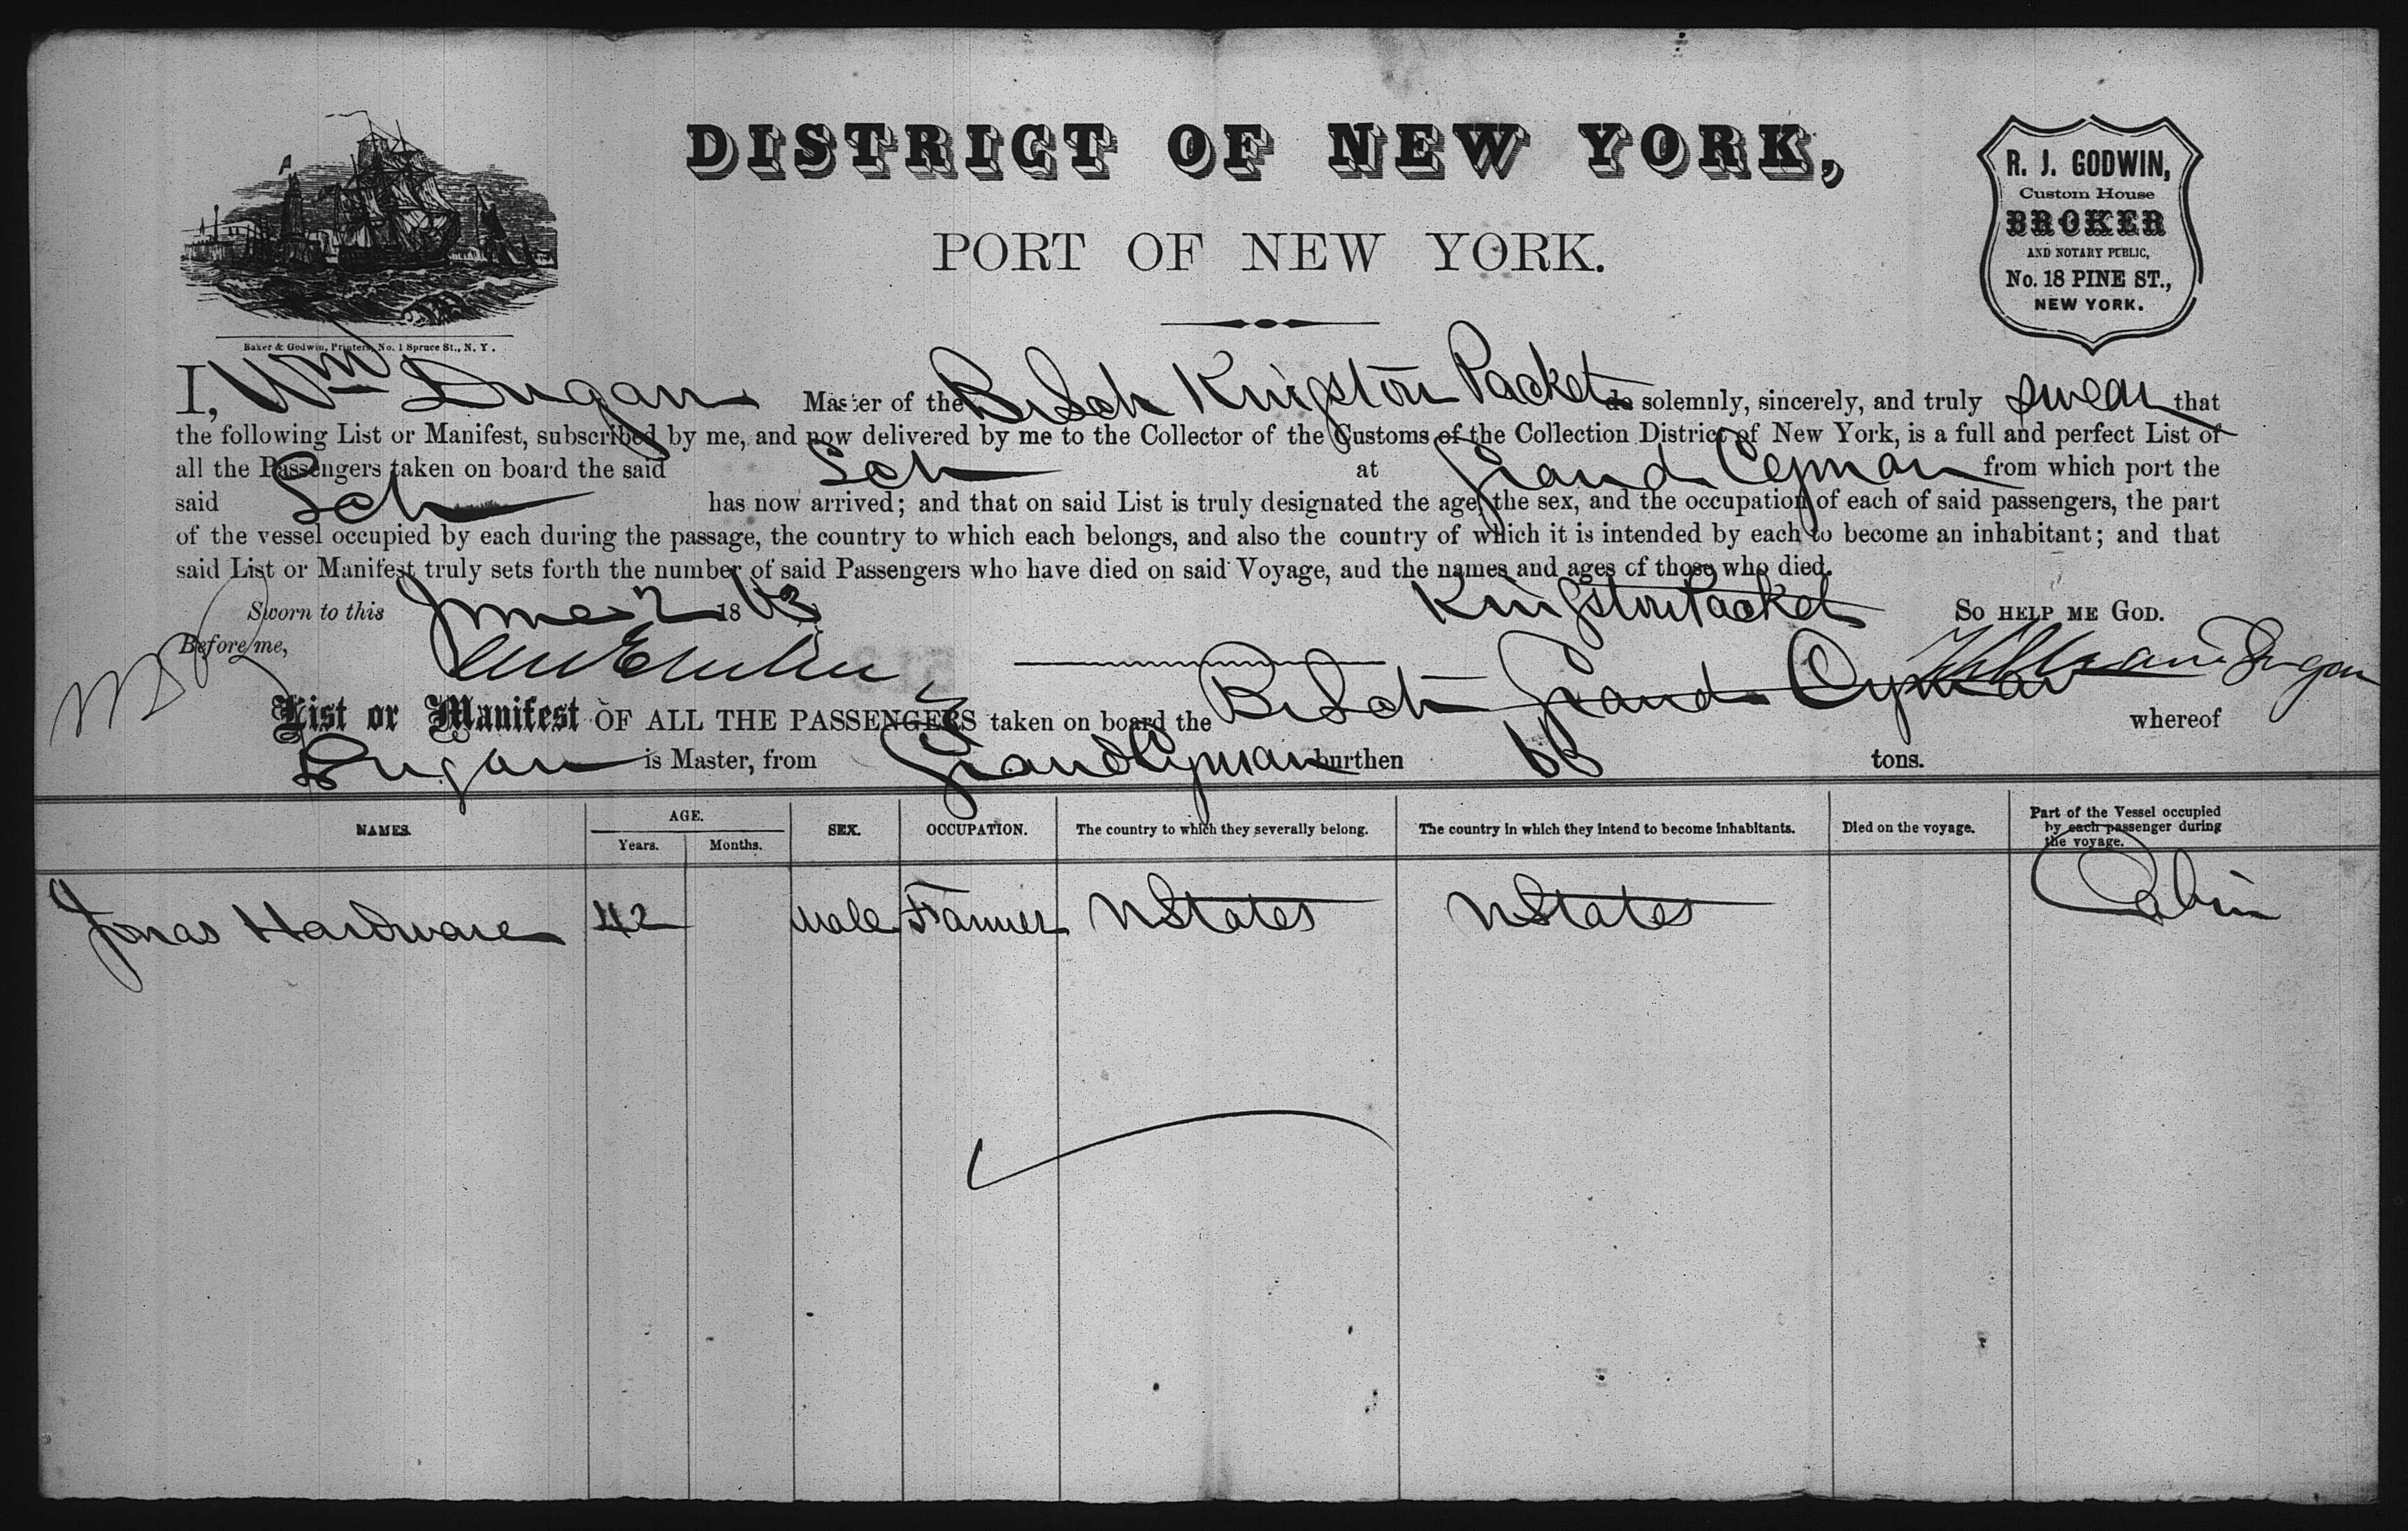 DISTRICT OF NEW YORK,
PORT OF NEW YORK.
R. J. GODWIN,
Custom House
BROKER
AND NOTARY PUBLIC,
No. 18 PINE ST.,
NEW YORK.
Baker & Godwin, Printers, No. 1 Spruce St., N. Y.
I, Wm Dugan Master of the Br Sch Kingston Packet do solemnly, sincerely, and truly swear that
the following List or Manifest, subscribed by me, and now delivered by me to the Collector of the Customs of the Collection District of New York, is a full and perfect List of
all the Passengers taken on board the said Sch at Grand Cayman from which port the
said Sch has now arrived; and that on said List is truly designated the age, the sex, and the occupation of each of said passengers, the part
of the vessel occupied by each during the passage, the country to which each belongs, and also the country of which it is intended by each to become an inhabitant; and that
said List or Manifest truly sets forth the number of said Passengers who have died on said Voyage, and the names and ages of those who died.
Sworn to this June 2 1863 Kingston Packet So HELP ME GOD.
Before me, William Dugan
List or Manifest OF ALL THE PASSENGERS taken on board the Br Sch Grand Cyman whereof
Dugan is Master, from Grand Cyman burthen tons.
NAMES. AGE. Years. Months. SEX. OCCUPATION. The country to which they severally belong. The country in which they intend to become inhabitants. Died on the voyage. Part of the Vessel occupied by each passenger during the voyage.
Jonas Hardware 42 Male Farmer UStates UStates Cabin